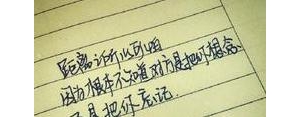 距离之所以可怕
因为根本不知道对方是把你想念
还是把你忘记